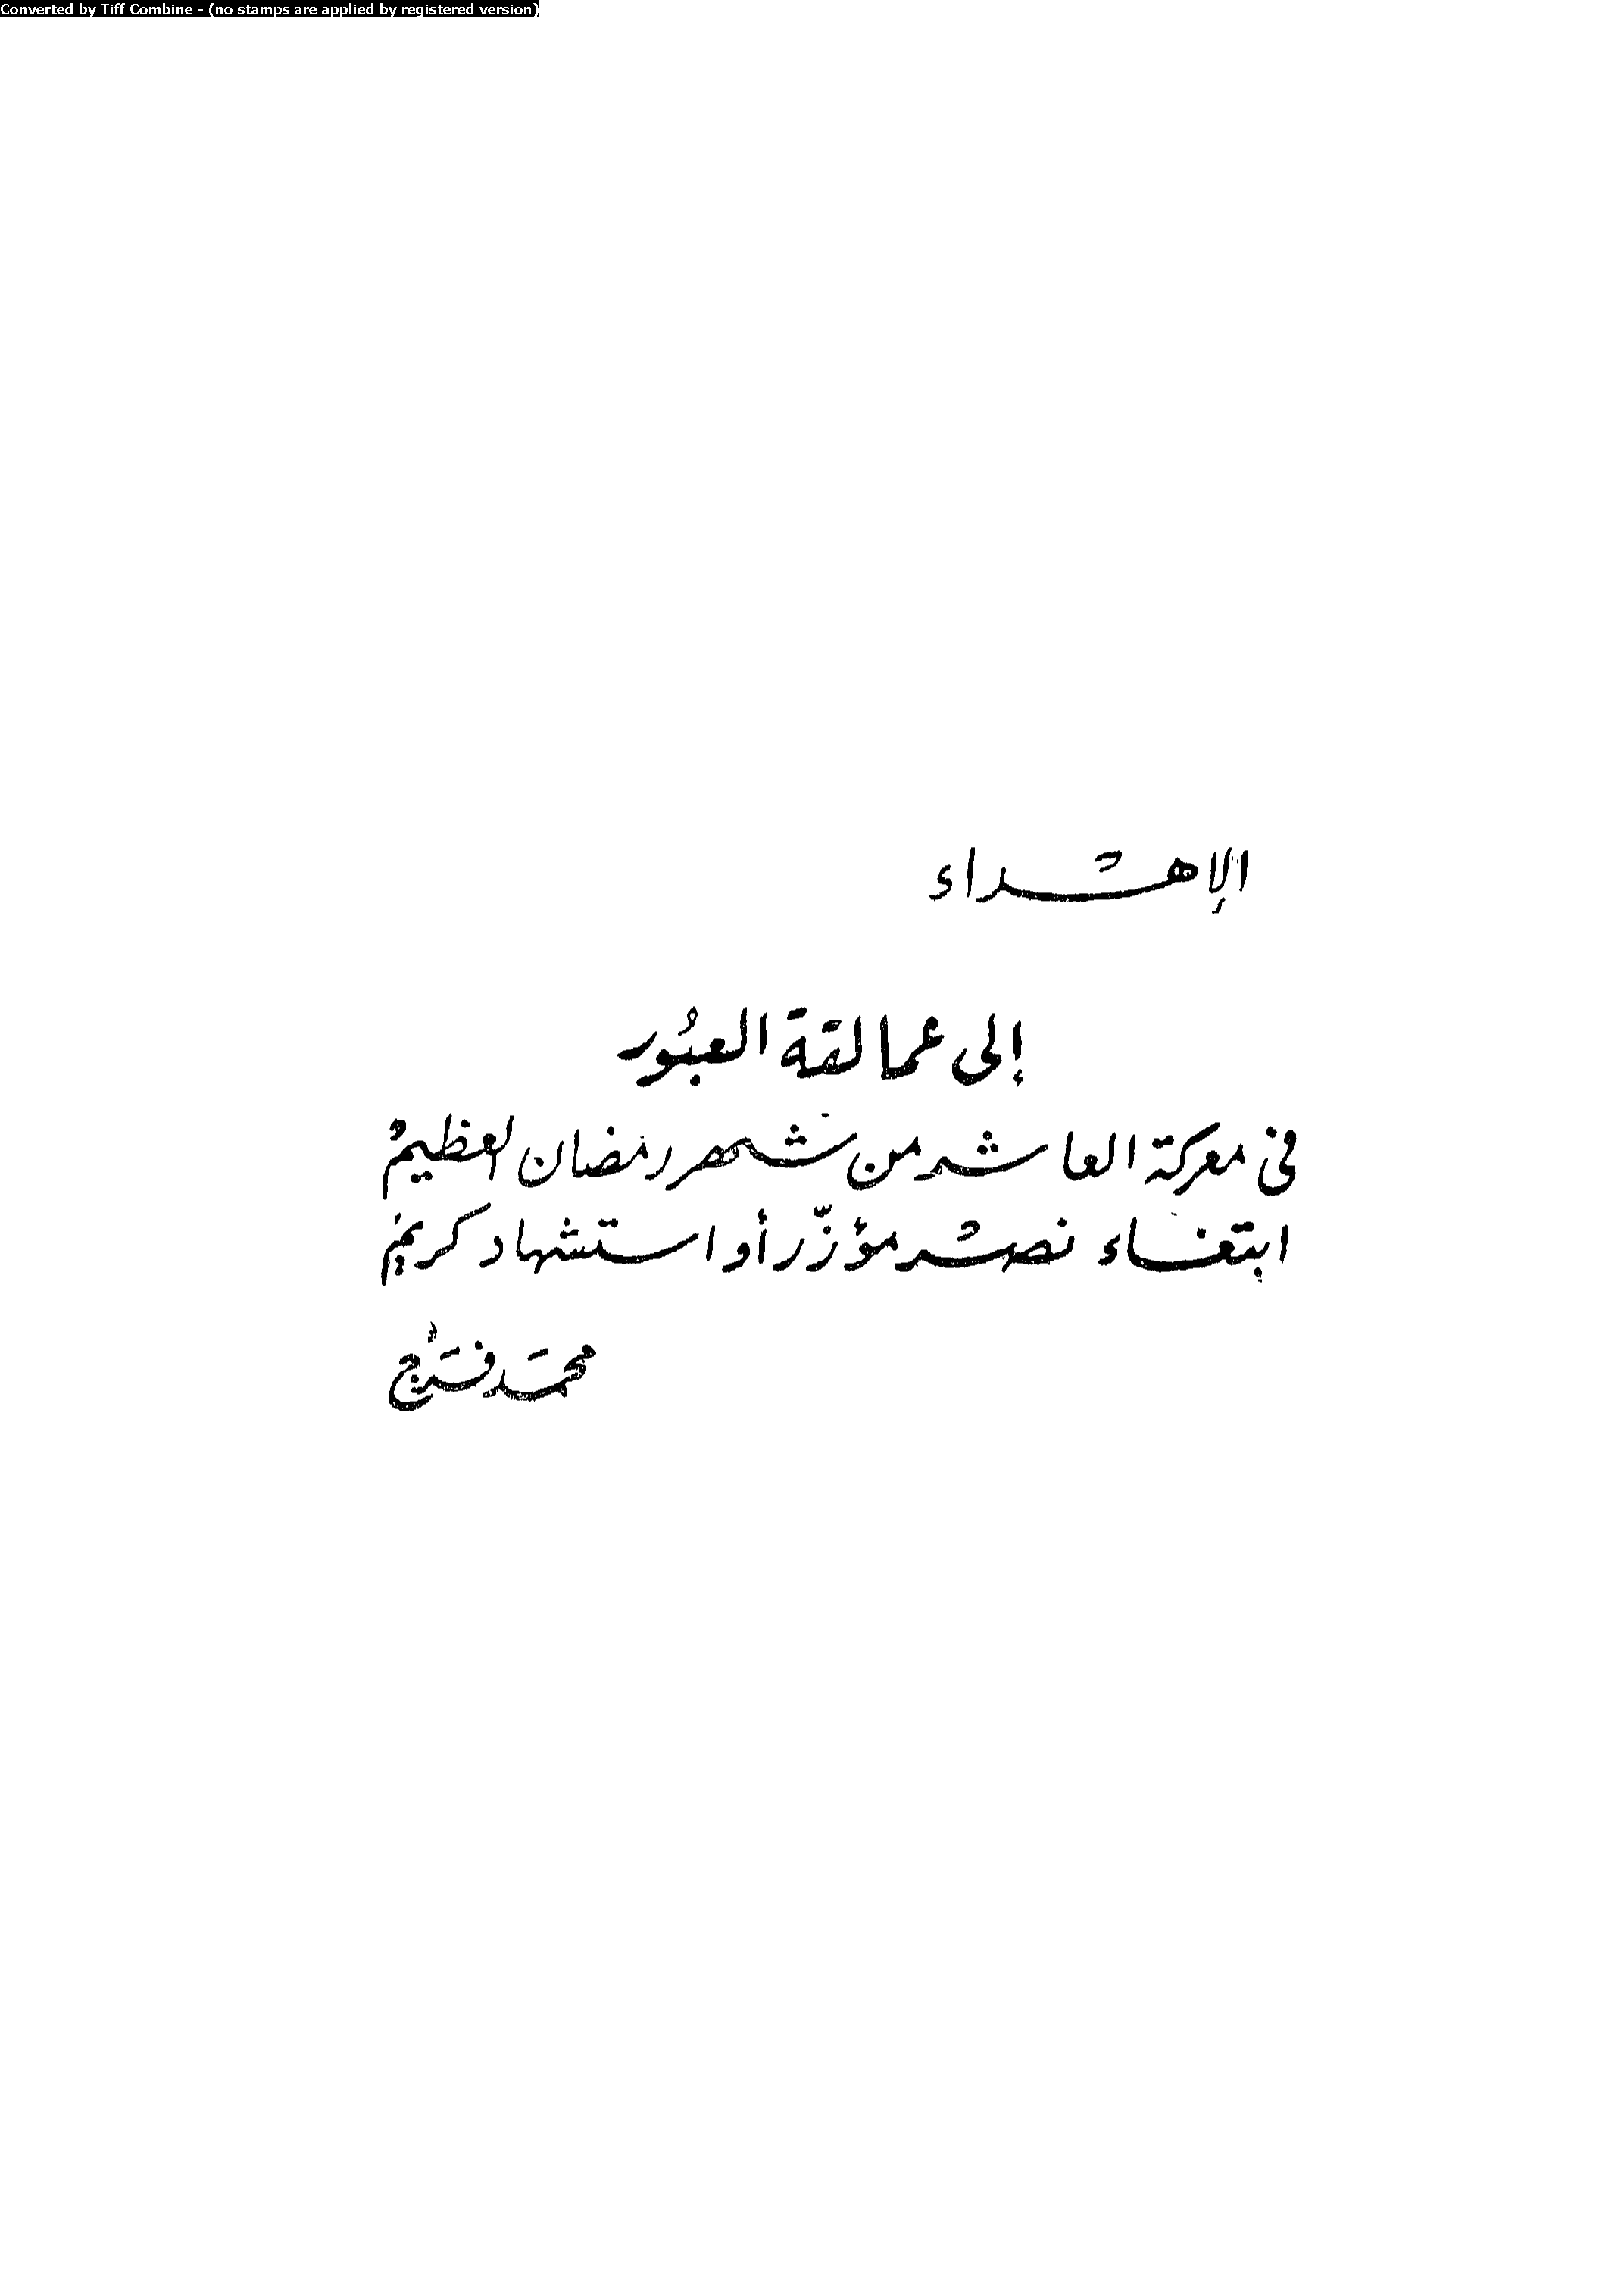 Converted by Tiff Combine - (no stamps are applied by registered version)
الإهداء
إلى عمالقة العبُور
في معركة العاشر من شهر رمضان العظيم
ابتغاء نصر مؤزّر أو استشهاد كريم
محمَد فرَج